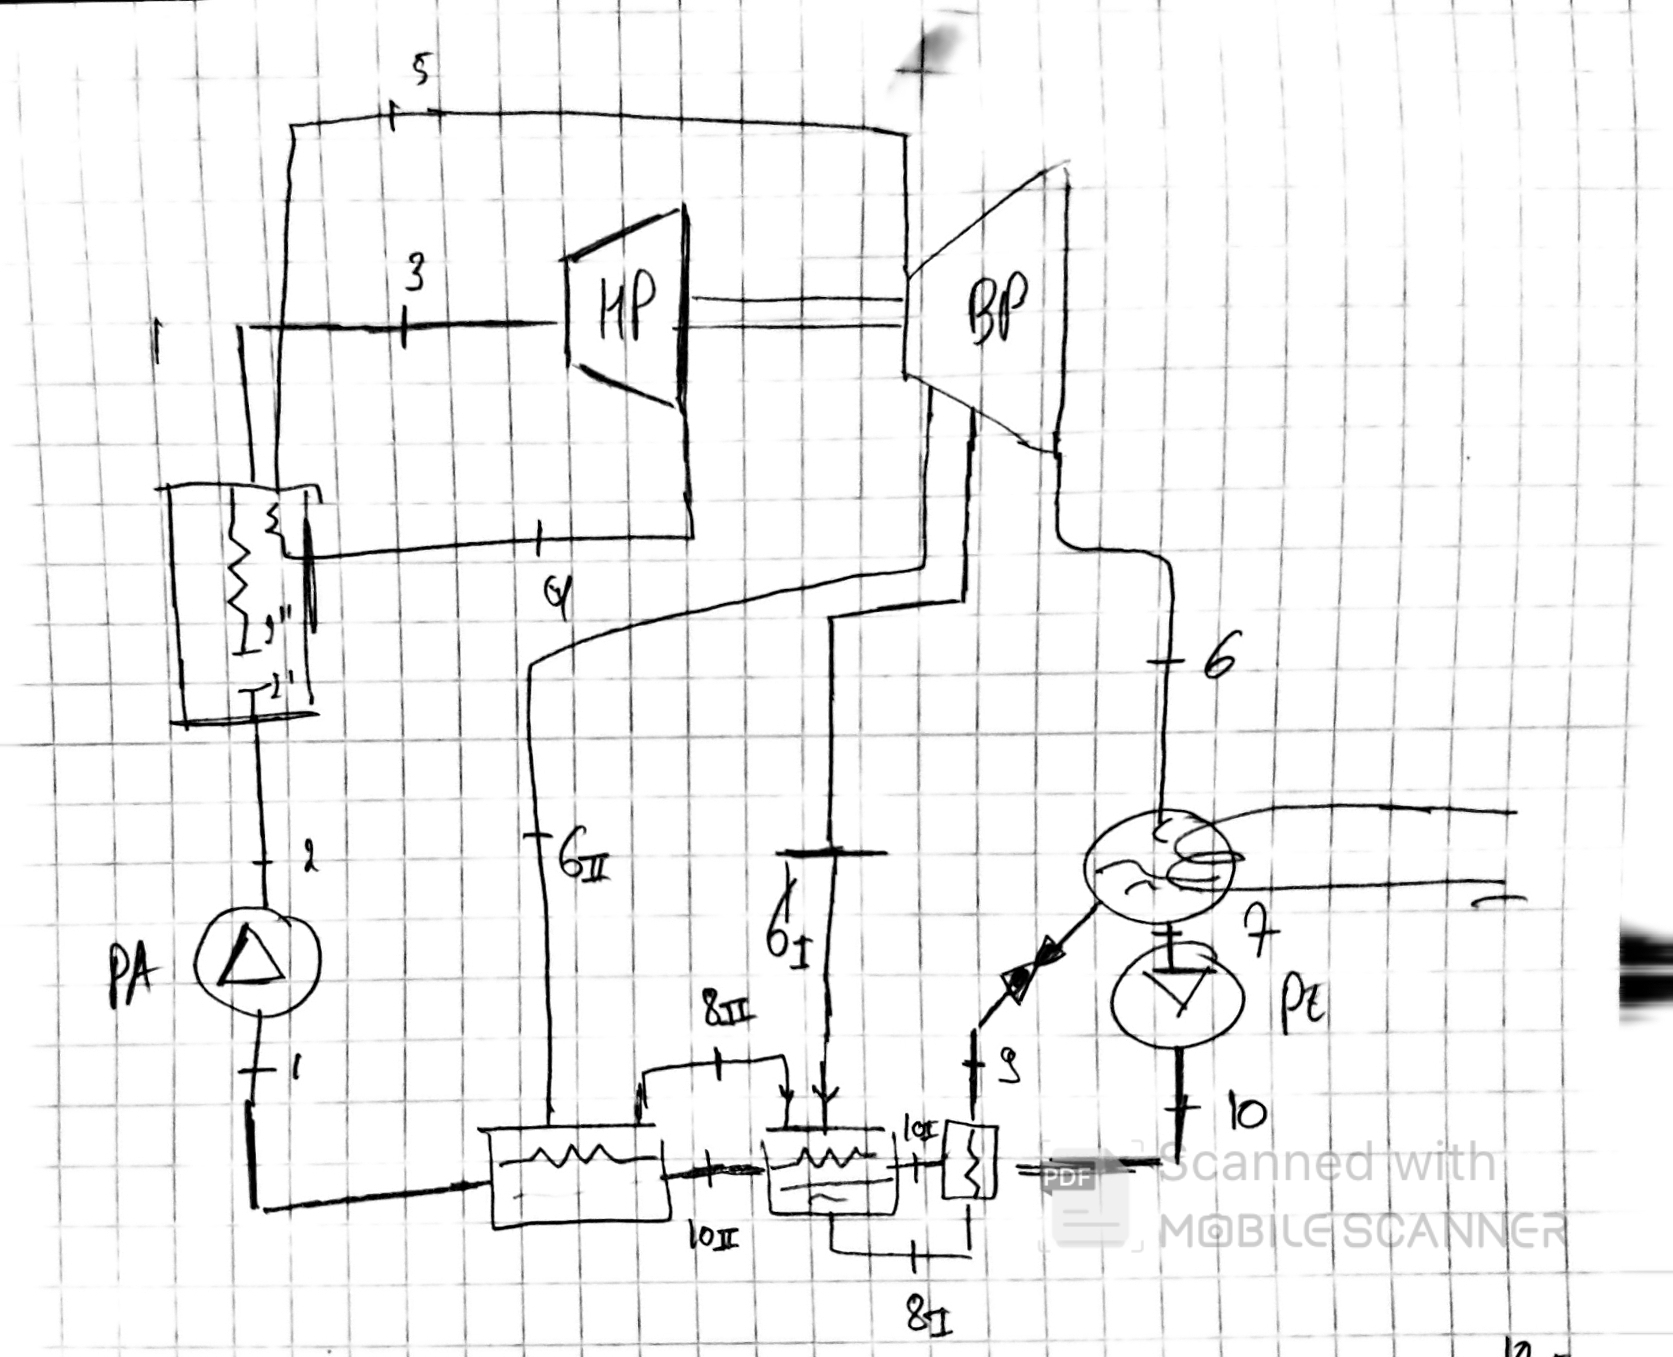 5
3
HP
BP
4
2"
2'
6
2
6II
6I
7
PA
Pe
8II
1
9
10
10I
10II
8I
PDF
Scanned with
MOBILE SCANNER